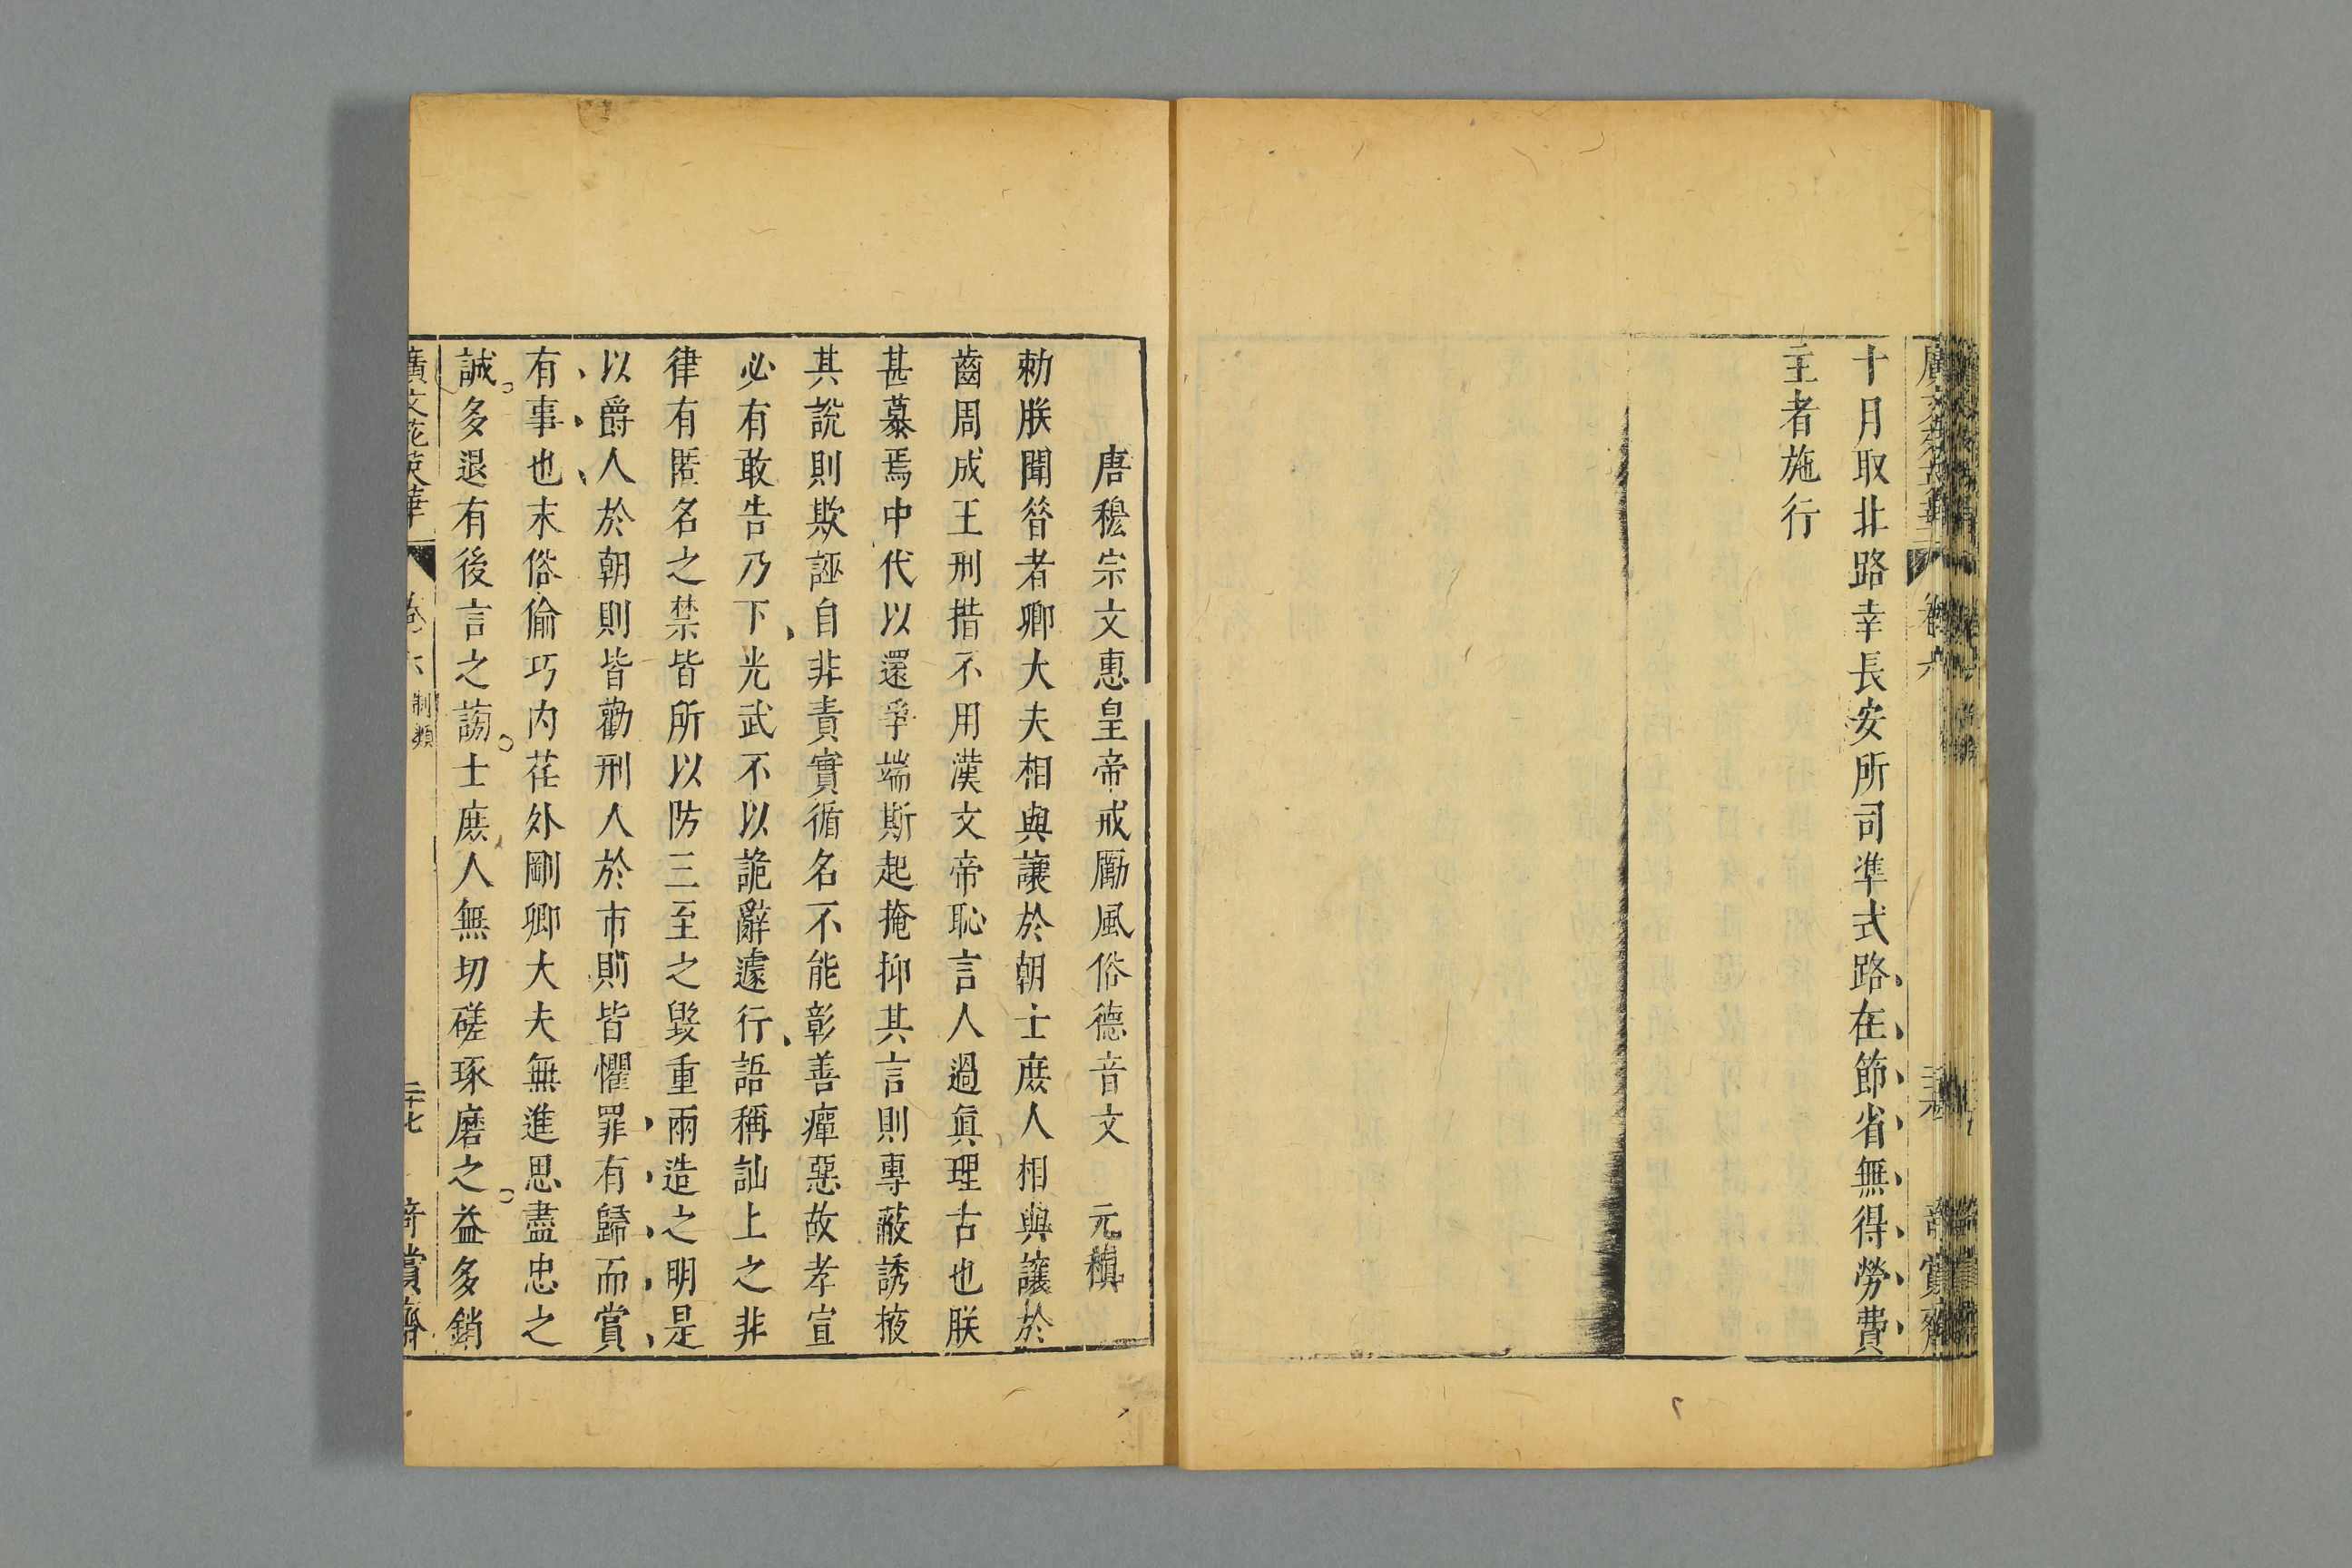 十月取北路幸長安所司準式路在節省無得勞費
主者施行
唐穆宗文惠皇帝戒勵風俗德音文　元稹
勑朕聞昝者卿大夫相與讓於朝士庶人相與讓於
齒周成王刑措不用漢文帝恥言人過眞理古也朕
甚慕焉中代以還爭端斯起掩抑其言則專蔽誘掖
其說則欺誣自非責實循名不能彰善癉惡故孝宣
必有敢告乃下光武不以詭辭遽行語稱訕上之非
律有匿名之禁皆所以防三至之毀重兩造之明是
以爵人於朝則皆勸刑人於市則皆懼罪有歸而賞
有事也末俗偷巧内荏外剛卿大夫無進思盡忠之
誠多退有後言之謗士庶人無切磋琢磨之益多銷
廣文苑英華　卷六　制類　二十七　奇賞齋